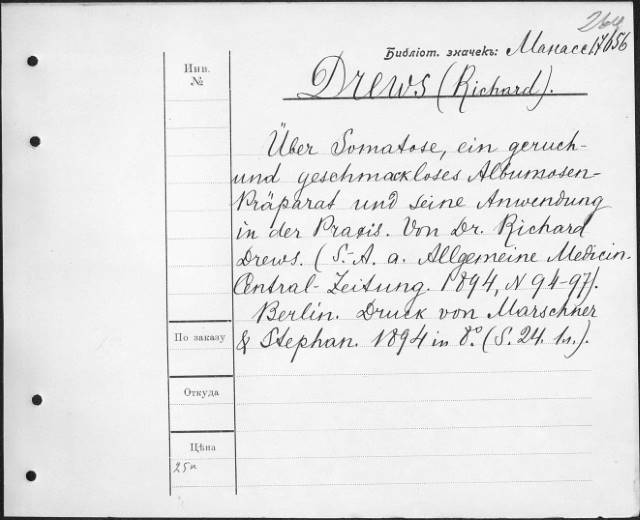 264
Библіот. значекъ: Манасс 17/656
Инв.
№
Drews (Richard).
Über Somatose, ein geruch-
und geschmackloses Albumosen-
Präparat und seine Anwendung
in der Praxis. Von Dr. Richard
Drews. (S.-A. a. Allgemeine Medicin.
Central-Zeitung. 1894, N 94-97).
Berlin. Druck von Marschner
& Stephan. 1894 in 8º. (S. 24. 1л.).
По заказу
Откуда
Цѣна
25к